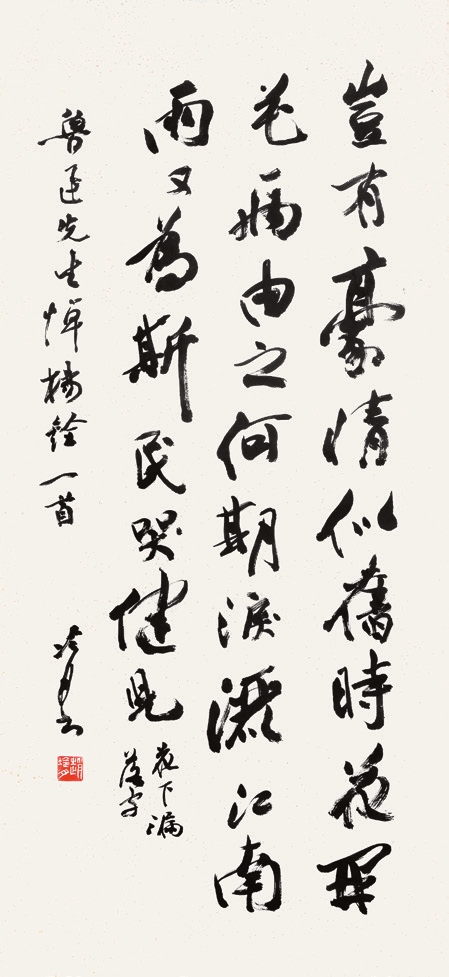 豈有豪情似舊時花開
花兩由之何期淚灑江南
雨又為斯民哭健兒
花下漏
落字
魯迅先生悼楊銓一首
冷月書